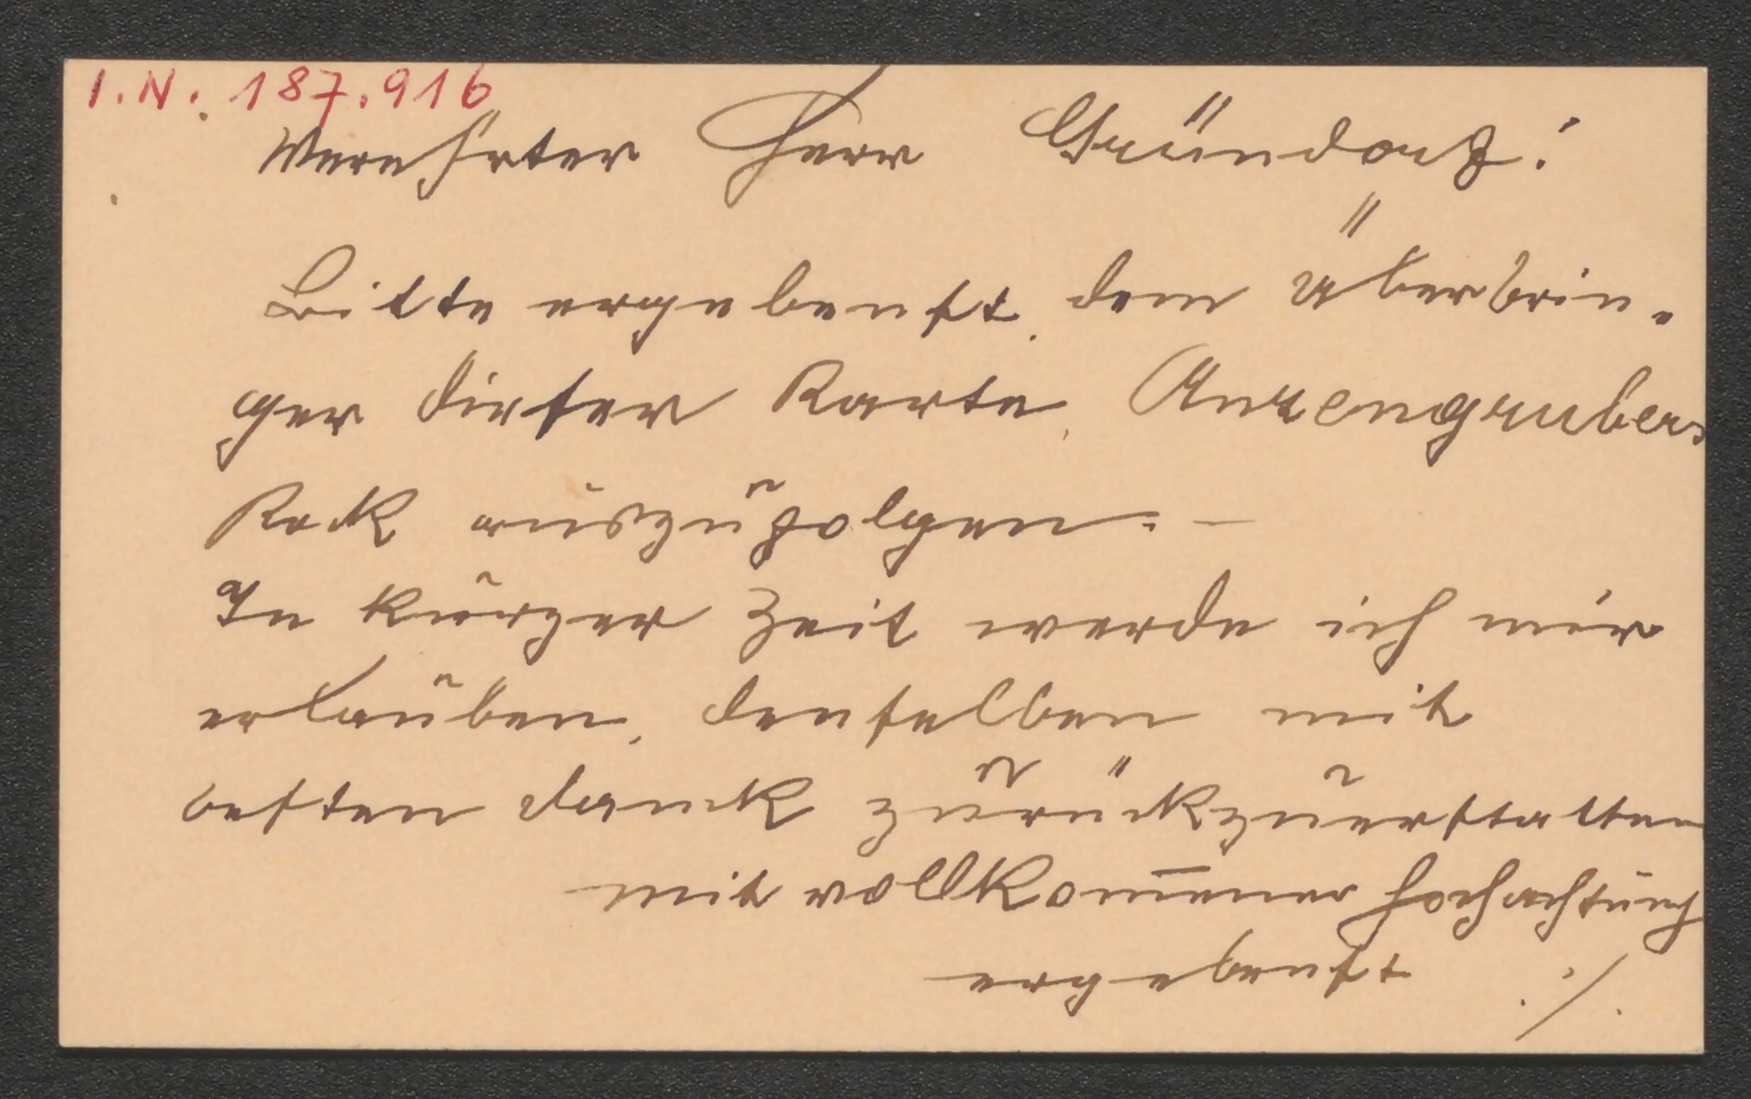 I.N. 187.916
Verehrter Herr Gründorf!
Bitte ergebenst, dem Überbrin-
ger dieser Karte, Anzengrubers
Rock auszufolgen. —
In kurzer Zeit werde ich mir
erlauben, denselben mit
besten Dank zurückzuerstatten
mit vollkom̅ener Hochachtung
ergebenst ./.